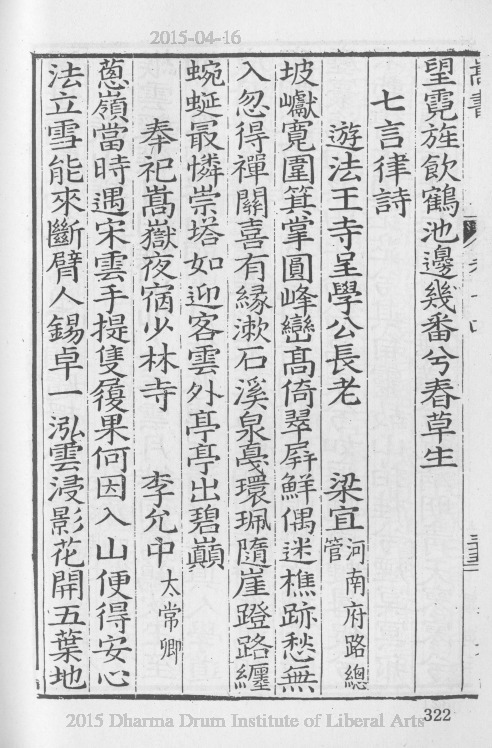 2015-04-16
嵩書
望霓旌飲鶴池邊幾番兮春草生
七言律詩
遊法王寺呈學公長老 梁宜河南府路總管
坡巘寬圍箕掌圓峰巒髙倚翠屏鮮偶迷樵跡愁無
入忽得禪關喜有緣漱石溪泉戛環珮隨崖蹬路纒
蜿蜒最憐崇塔如迎客雲外亭亭出碧巔
奉祀嵩嶽夜宿少林寺 李允中太常卿
蔥嶺當時遇宋雲手提隻履果何因入山便得安心
法立雪能來斷臂人錫卓一泓雲浸影花開五葉地
2015 Dharma Drum Institute of Liberal Arts
322